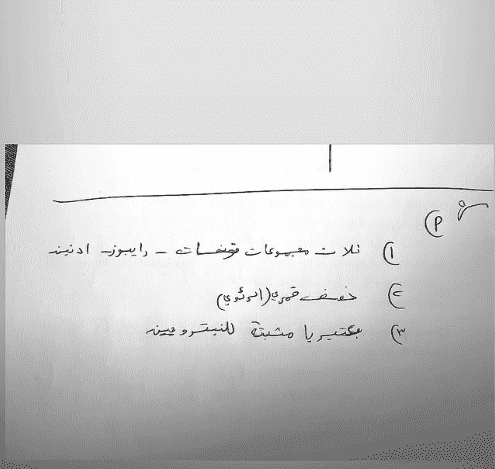 س
م)
١) ثلاث مجموعات فوسفات - رايبوز - ادنين
٢) خفض قمري (الرئوي)
٣) بكتيريا مثبتة للنيتروجين